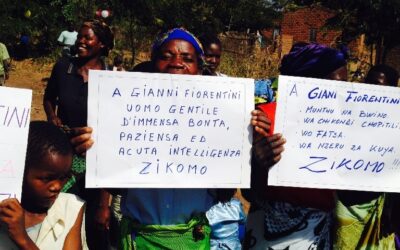 NTINI
A GIANNI FIORENTINI
UOMO GENTILE
D'IMMENSA BONTA,
PAZIENSA ED
ACUTA INTELLIGENZA
ZIKOMO
A GIANI FIORENTINI
MUNTHU WA BWINO
WA CHIKONDI CHOPITILI
WO FATSA.
WA NZERU ZA KUYA.
ZIKOMO !!!